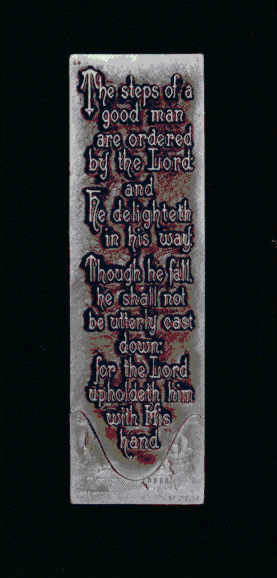 The steps of a
good man
are ordered
by the Lord:
and
He delighteth
in his way.
Though he fall,
he shall not
be utterly cast
down:
for the Lord
upholdeth him
with His
hand